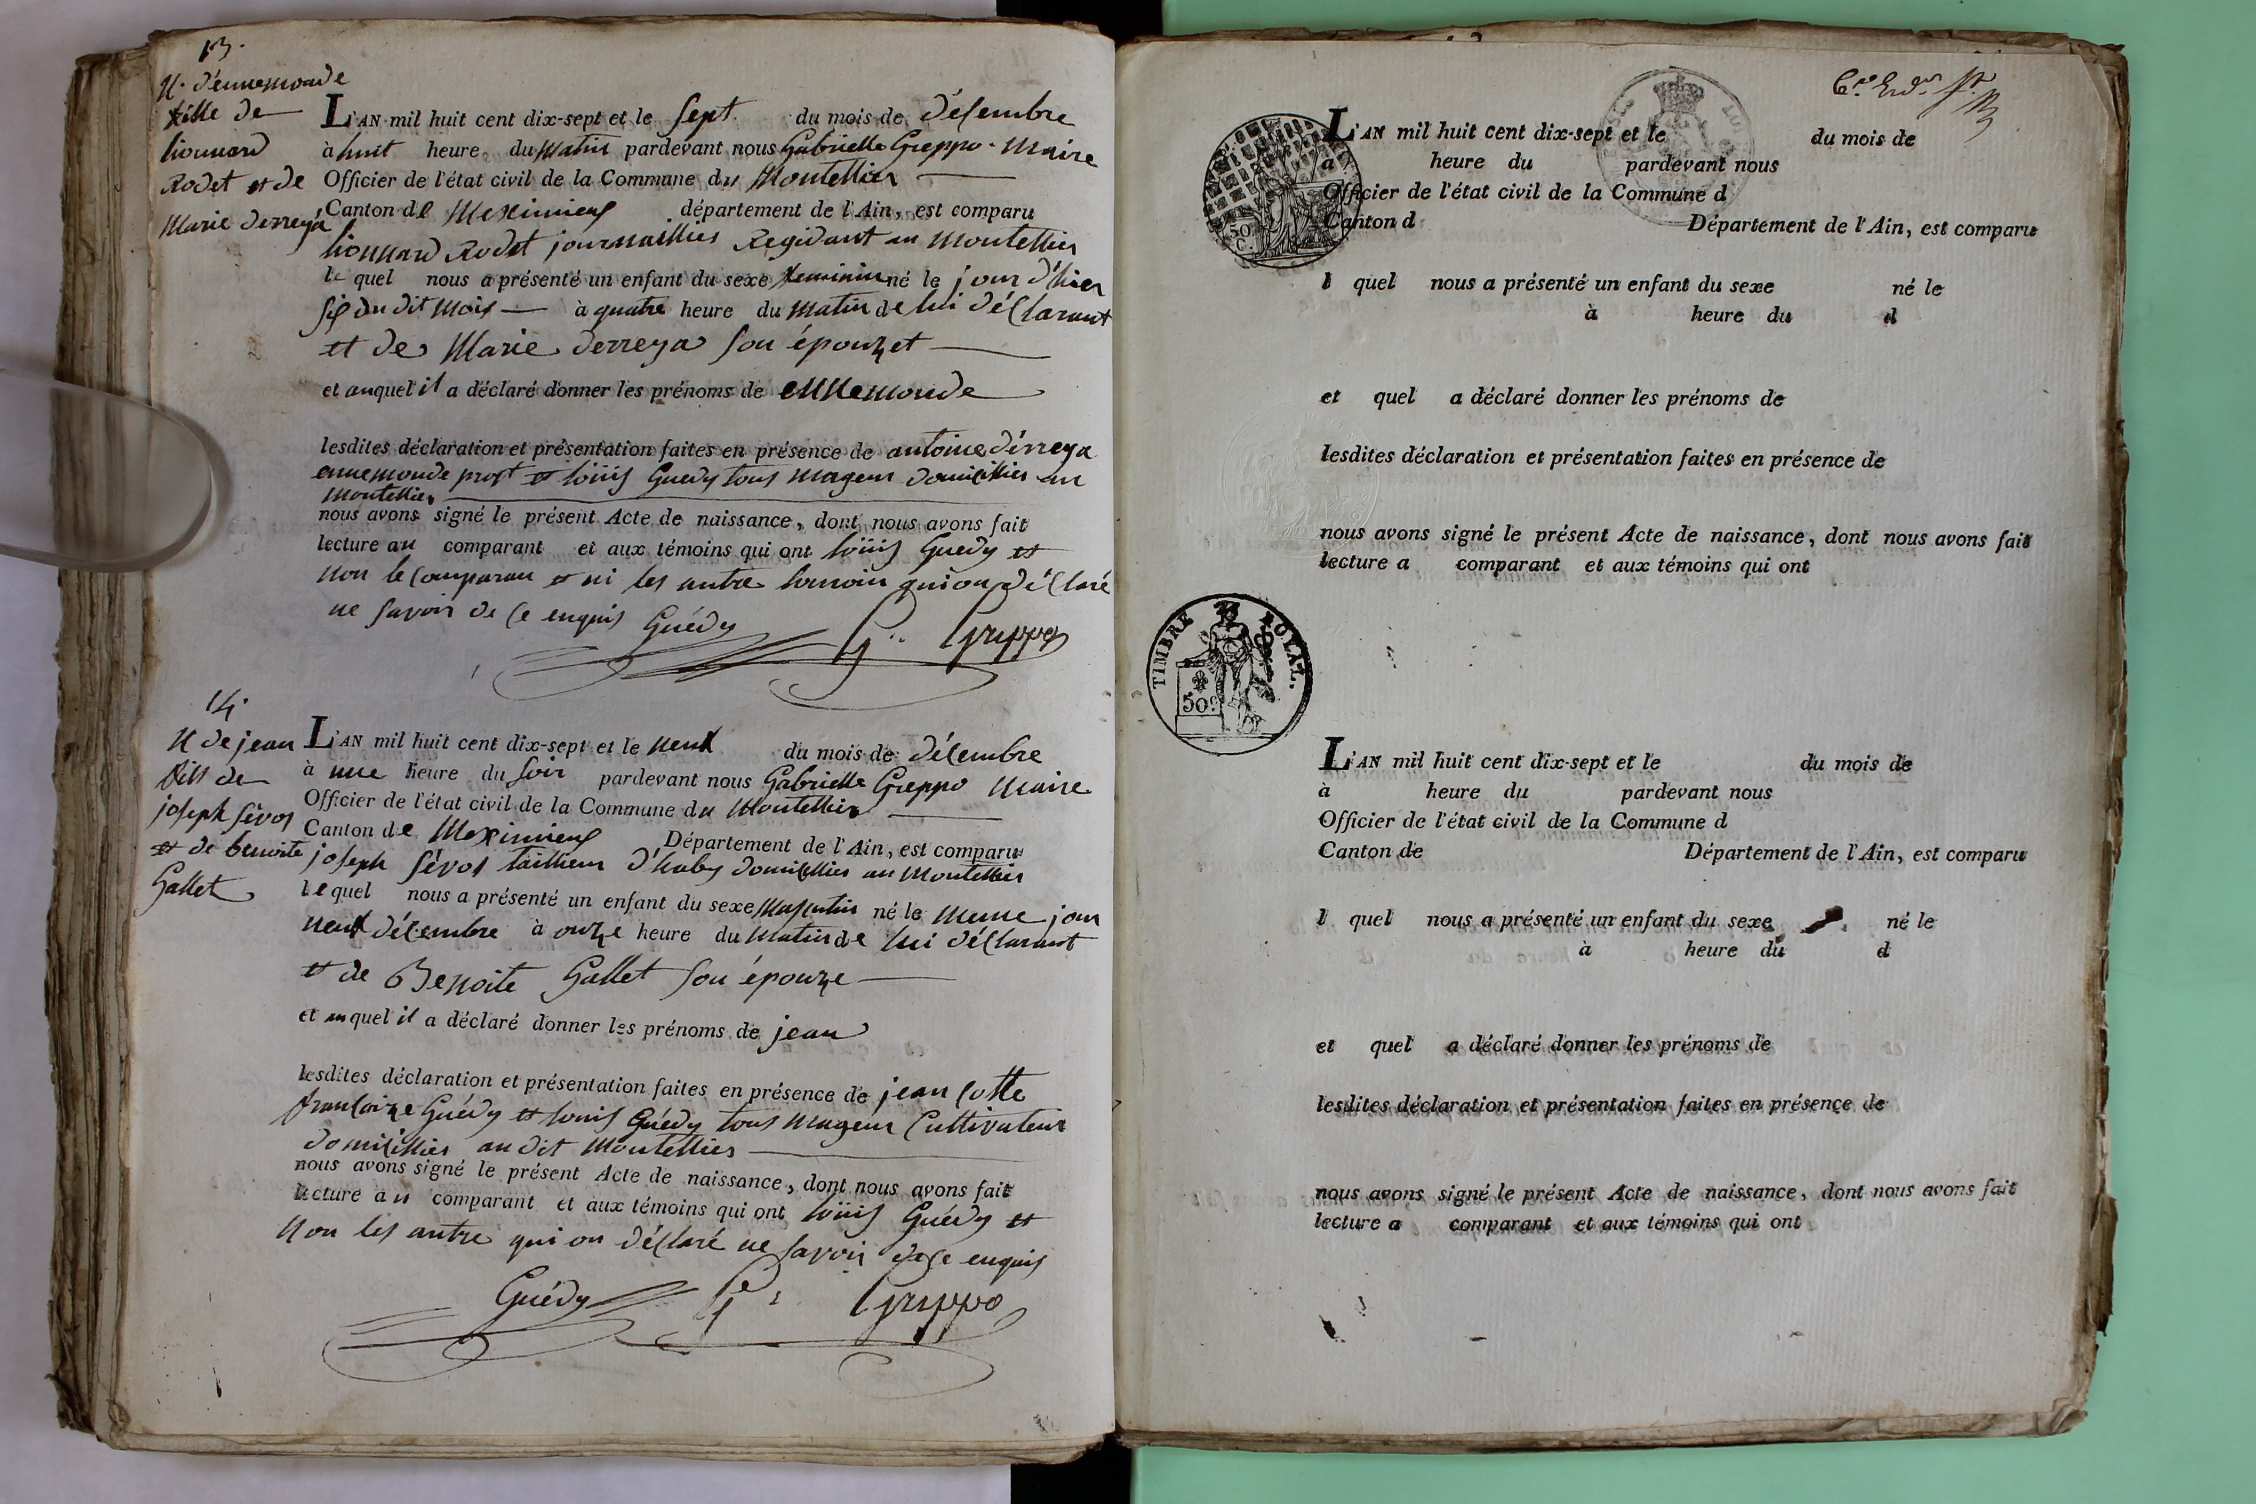 13.
N. d'ennemonde
fille de
lionnard
Rodet et de
Marie derreya
L'AN mil huit cent dix-sept et le sept du mois de décembre
à huit heure du matin pardevant nous Gabrielle Greppo Maire
Officier de l'état civil de la Commune du Montellier
Canton de Meximieux département de l'Ain, est comparu
lionnard Rodet journaillier Regidant au Montellier
le quel nous a présenté un enfant du sexe feminin né le jour d'hier
six du dit mois à quatre heure du matin de lui déclarant
et de Marie derreya son épouzet
et auquel il a déclaré donner les prénoms de ennemonde
lesdites déclaration et présentation faites en présence de antoine dérreya
ennemonde prost et loüis Guedy tous mageur domicillier au
montellier
nous avons signé le présent Acte de naissance, dont nous avons fait
lecture au comparant et aux témoins qui ont loüis Guedy et
non le comparan et ni les autre temoin qui on déclaré
ne savoir de ce enquis Guédy G.. Greppo
14.
N de jean
fils de
joseph sévos
et de benoite
Gallet
L'AN mil huit cent dix-sept et le neuf du mois de décembre
à une heure du soir pardevant nous Gabrielle Greppo Maire
Officier de l'état civil de la Commune du Montellier
Canton de Meximieux Département de l'Ain, est comparu
joseph sévos taillieur d'habis domicillier au Montellier
le quel nous a présenté un enfant du sexe masculin né le meme jour
neuf décembre à onze heure du matin de lui déclarant
et de Benoite Gallet son épouze
et auquel il a déclaré donner les prénoms de jean
lesdites déclaration et présentation faites en présence de jean Cotte
francoize Guédy et louis Guédy tous mageur Cultivateur
domicillier au dit Montellier
nous avons signé le présent Acte de naissance, dont nous avons fait
lecture au comparant et aux témoins qui ont loüis Guédy et
non les autre qui on déclaré ne savoir de ce enquis
Guédy G. Greppo
L'AN mil huit cent dix-sept et le du mois de
a heure du pardevant nous
Officier de l'état civil de la Commune d
Canton d Département de l'Ain, est comparu
50
C.
l quel nous a présenté un enfant du sexe né le
à heure du d
et quel a déclaré donner les prénoms de
lesdites déclaration et présentation faites en présence de
nous avons signé le présent Acte de naissance, dont nous avons fait
lecture a comparant et aux témoins qui ont
TIMBRE ROYAL.
50c
L'AN mil huit cent dix-sept et le du mois de
à heure du pardevant nous
Officier de l'état civil de la Commune d
Canton de Département de l'Ain, est comparu
l quel nous a présenté un enfant du sexe né le
à heure du d
et quel a déclaré donner les prénoms de
lesdites déclaration et présentation faites en présence de
nous avons signé le présent Acte de naissance, dont nous avons fait
lecture a comparant et aux témoins qui ont